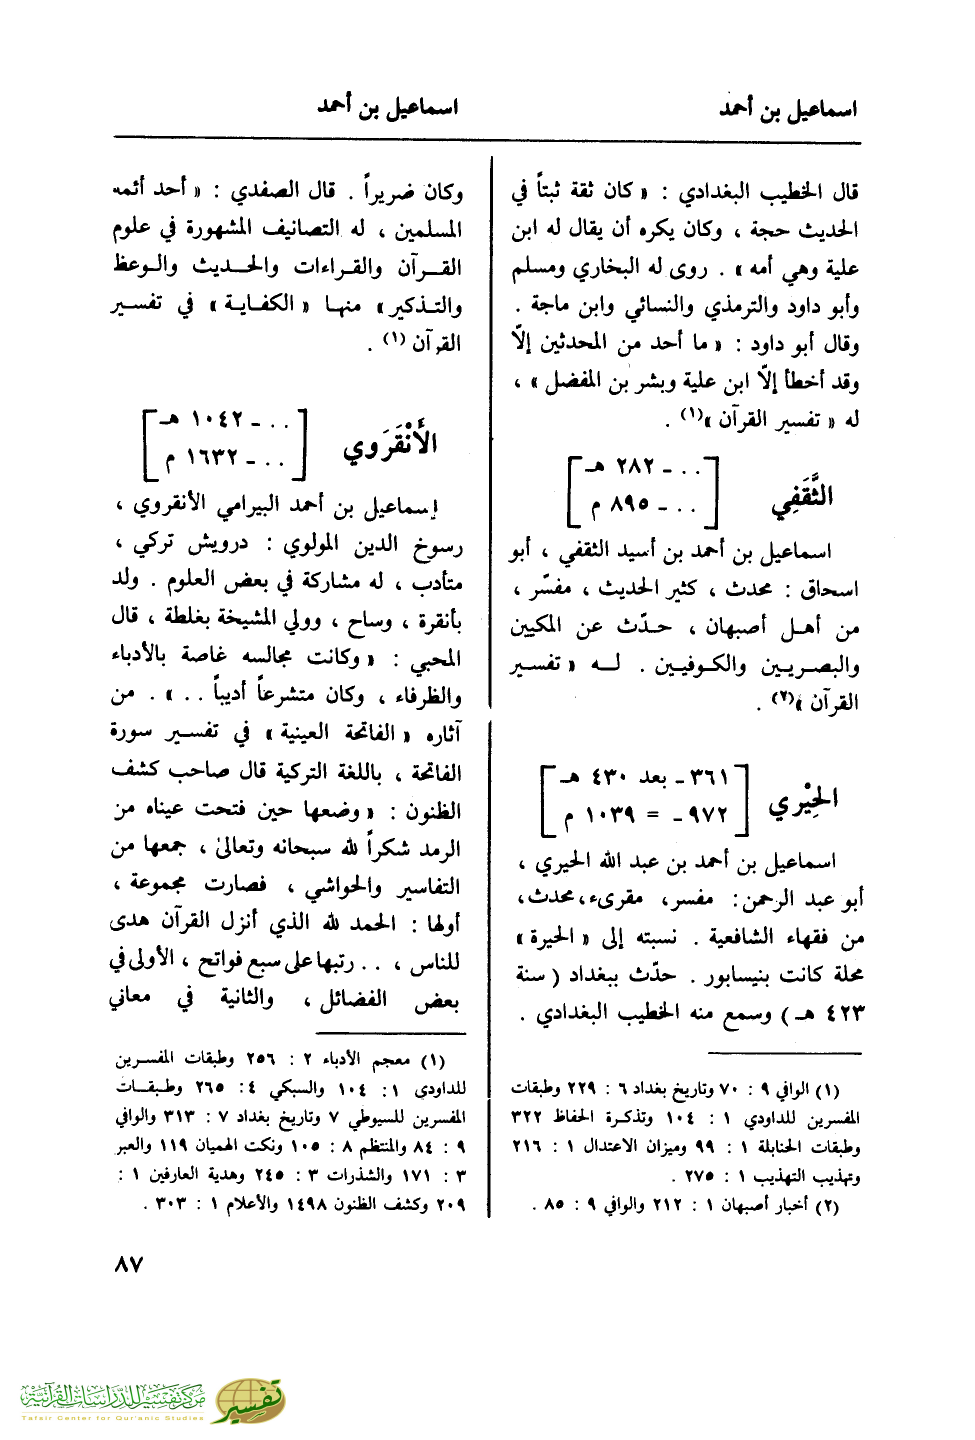 اسماعيل بن أحمد
اسماعيل بن أحمد
قال الخطيب البغدادي : « كان ثقة ثبتاً في
الحديث حجة ، وكان يكره أن يقال له ابن
علية وهي أمه » . روى له البخاري ومسلم
وأبو داود والترمذي والنسائي وابن ماجة .
وقال أبو داود : « ما أحد من المحدثين إلّا
وقد أخطأ إلّا ابن علية وبشر بن المفضل » ،
له « تفسير القرآن »(١) .
الثَّقَفِي
[ . . ـ ٢٨٢ هـ
. . ـ ٨٩٥ م ]
اسماعيل بن أحمد بن أسيد الثقفي ، أبو
اسحاق : محدث ، كثير الحديث ، مفسّر ،
من أهل أصبهان ، حدّث عن المكيين
والبصريين والكوفيين . له « تفسير
القرآن »(٢) .
الحِيْري
[ ٣٦١ ـ بعد ٤٣٠ هـ
٩٧٢ ـ = ١٠٣٩ م ]
اسماعيل بن أحمد بن عبد الله الحيري ،
أبو عبد الرحمن : مفسر ، مقرىء ، محدث ،
من فقهاء الشافعية . نسبته إلى « الحيرة »
محلة كانت بنيسابور . حدّث ببغداد ( سنة
٤٢٣ هـ ) وسمع منه الخطيب البغدادي .
(١) الوافي ٩ : ٧٠ وتاريخ بغداد ٦ : ٢٢٩ وطبقات
المفسرين للداودي ١ : ١٠٤ وتذكرة الحفاظ ٣٢٢
وطبقات الحنابلة ١ : ٩٩ وميزان الاعتدال ١ : ٢١٦
وتهذيب التهذيب ١ : ٢٧٥ .
(٢) أخبار أصبهان ١ : ٢١٢ والوافي ٩ : ٨٥ .
وكان ضريراً . قال الصفدي : « أحد أئمه
المسلمين ، له التصانيف المشهورة في علوم
القرآن والقراءات والحديث والوعظ
والتذكير » منها « الكفاية » في تفسير
القرآن (١) .
الأَنْقَرَوي
[ . . ـ ١٠٤٢ هـ
. . ـ ١٦٣٢ م ]
إسماعيل بن أحمد البيرامي الأنقروي ،
رسوخ الدين المولوي : درويش تركي ،
متأدب ، له مشاركة في بعض العلوم . ولد
بأنقرة ، وساح ، وولي المشيخة بغلطة ، قال
المحبي : « وكانت مجالسه غاصة بالأدباء
والظرفاء ، وكان متشرعاً أديباً . . » . من
آثاره « الفاتحة العينية » في تفسير سورة
الفاتحة ، باللغة التركية قال صاحب كشف
الظنون : « وضعها حين فتحت عيناه من
الرمد شكراً لله سبحانه وتعالىٰ ، جمعها من
التفاسير والحواشي ، فصارت مجموعة ،
أولها : الحمد لله الذي أنزل القرآن هدى
للناس ، . . رتبها على سبع فواتح ، الأولى في
بعض الفضائل ، والثانية في معاني
(١) معجم الأدباء ٢ : ٢٥٦ وطبقات المفسرين
للداودي ١ : ١٠٤ والسبكي ٤ : ٢٦٥ وطبقات
المفسرين للسيوطي ٧ وتاريخ بغداد ٧ : ٣١٣ والوافي
٩ : ٨٤ والمنتظم ٨ : ١٠٥ ونكت الهميان ١١٩ والعبر
٣ : ١٧١ والشذرات ٣ : ٢٤٥ وهدية العارفين ١ :
٢٠٩ وكشف الظنون ١٤٩٨ والأعلام ١ : ٣٠٣ .
٨٧
مركز تفسير للدراسات القرآنية
Tafsir Center for Qur'anic Studies
تفسير